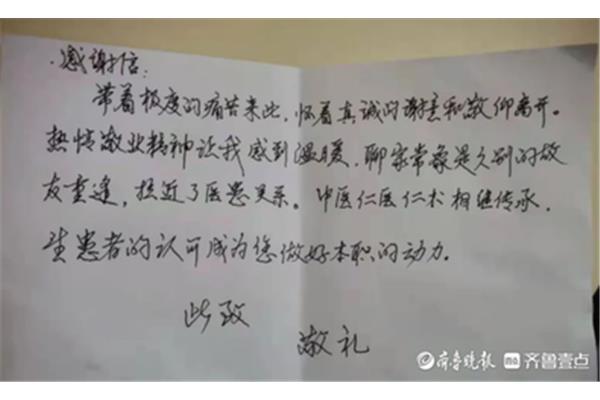 感谢信:
带着极度的痛苦来此,怀着真诚的谢意和敬仰离开。
热情敬业精神让我感到温暖,聊家常象是久别的故
友重逢,拉近了医患关系。中医仁医仁术相继传承,
患者的认可成为您做好本职的动力。
此致
敬礼
齐鲁晚报 齐鲁壹点